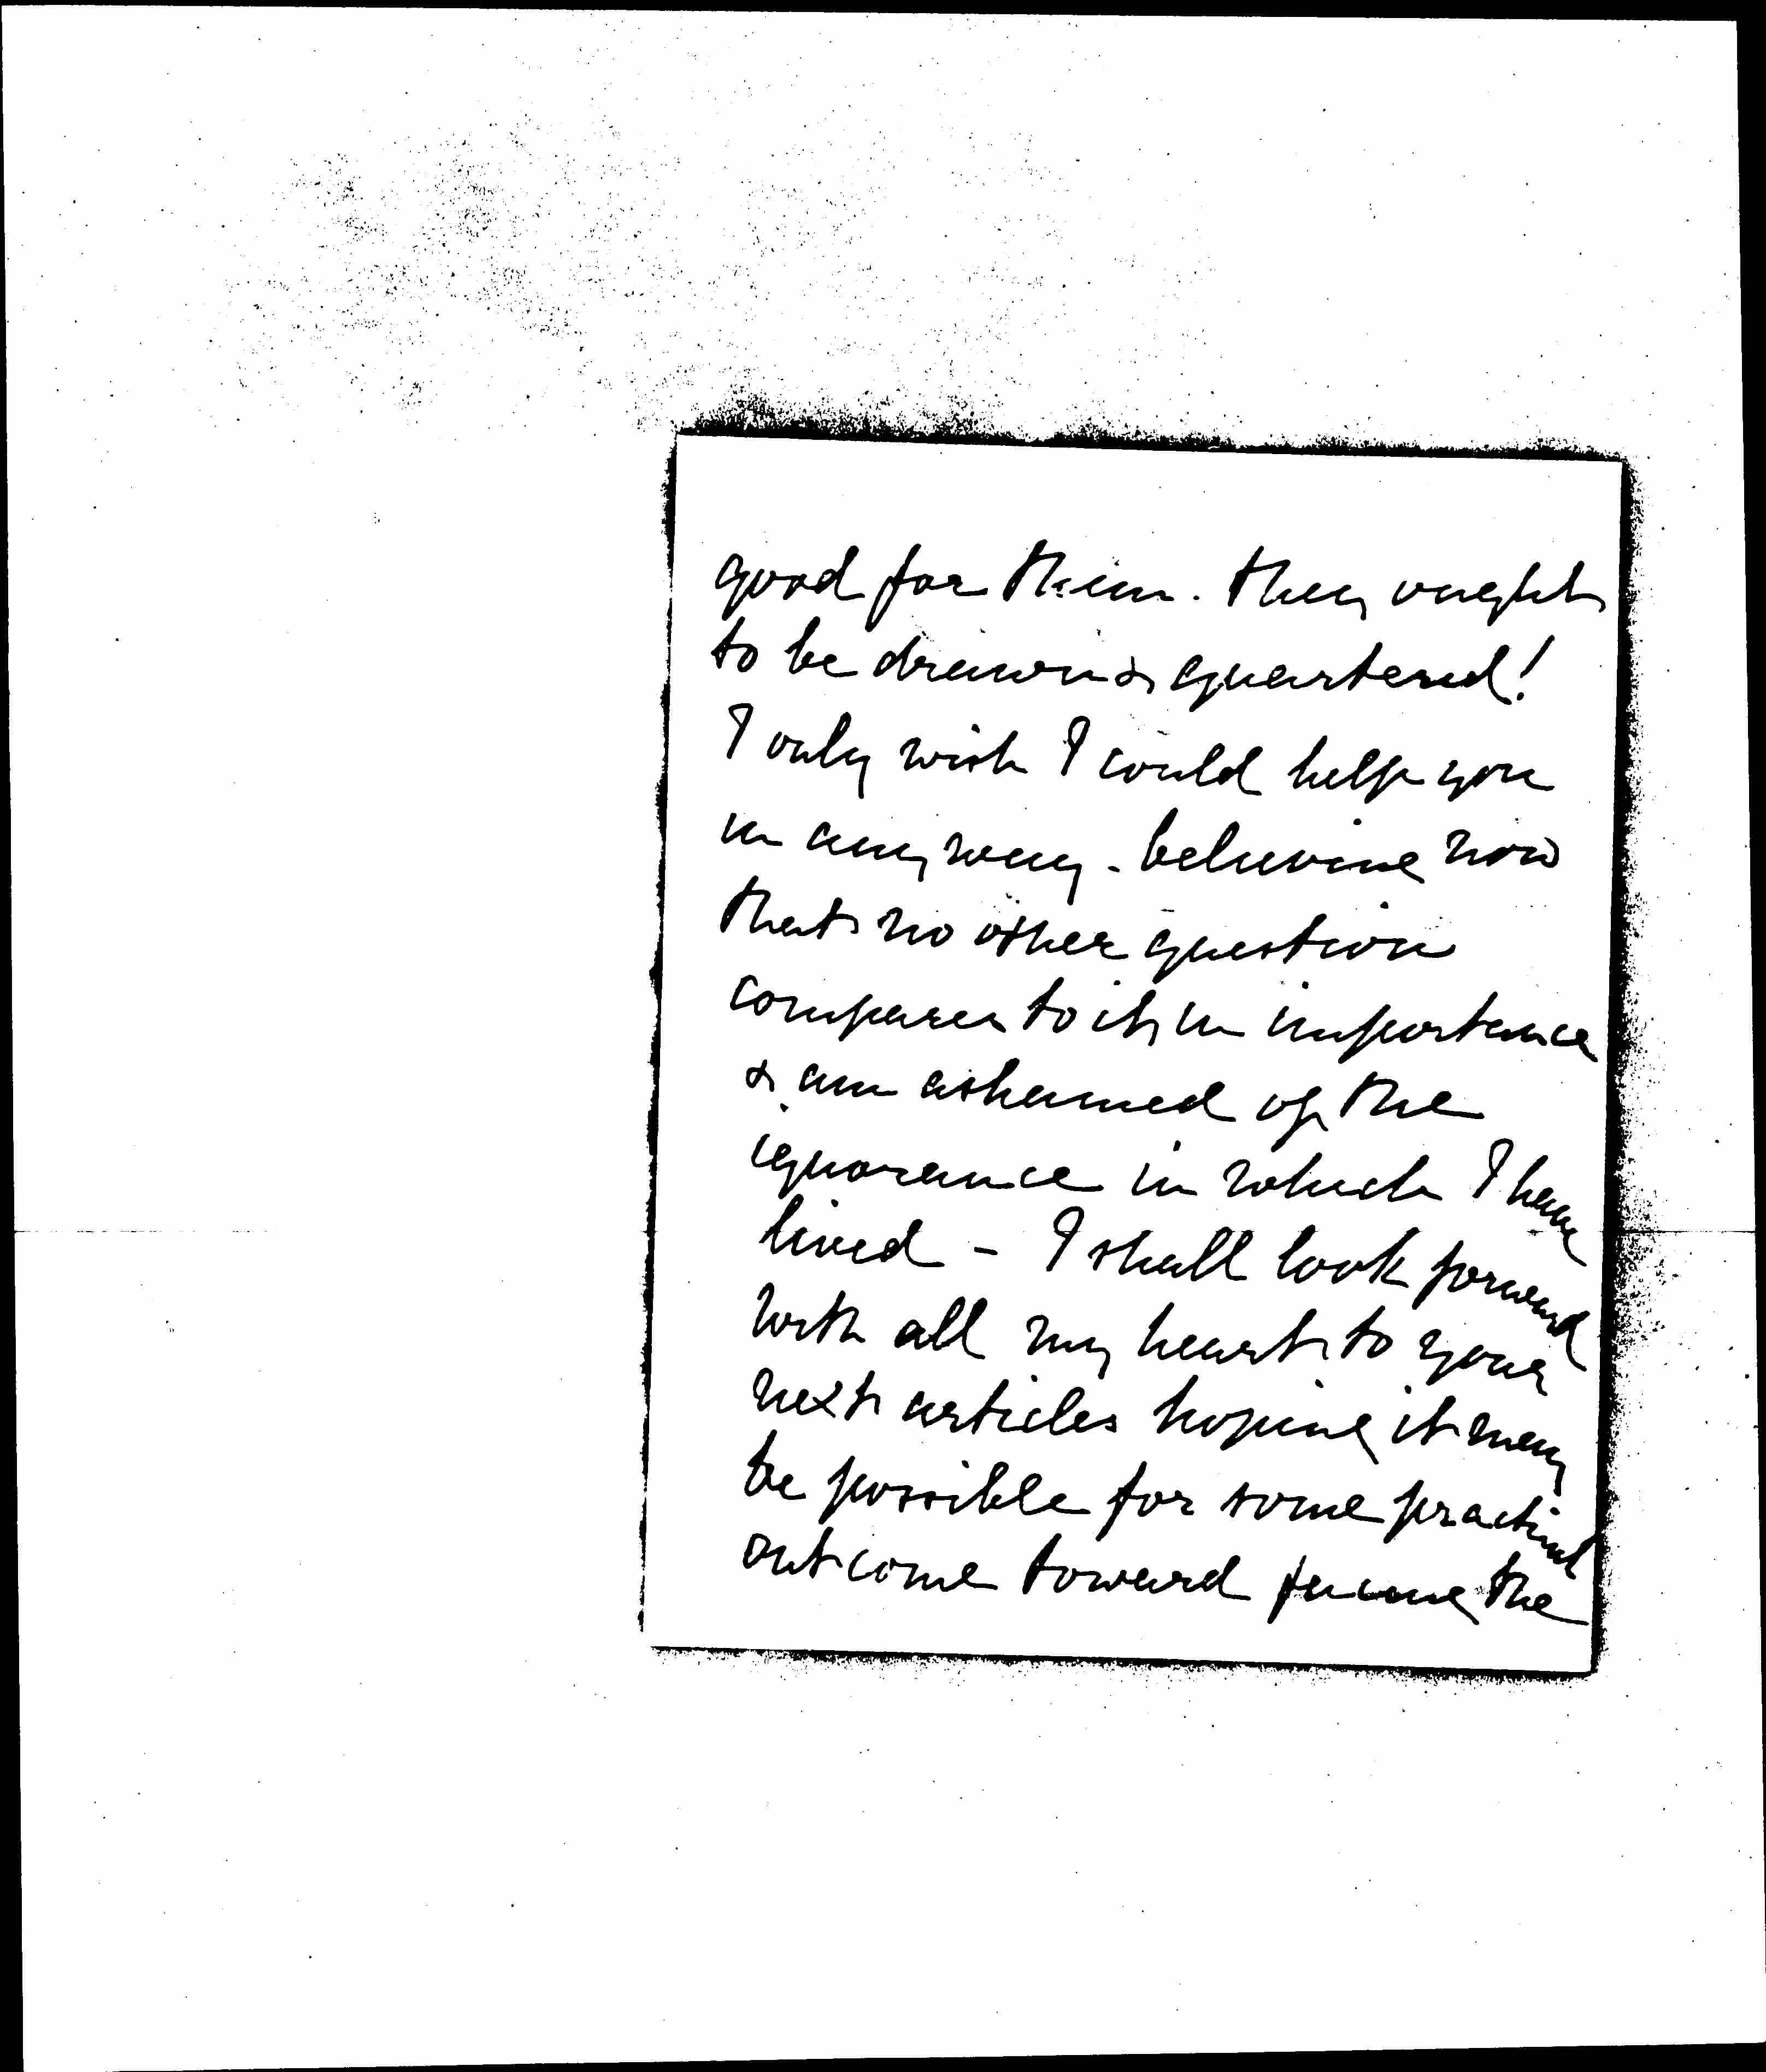 good for them. they ought
to be drawn & quartered!
I only wish I could help you
in any way - believing now
that no other question
compares to it in importance
& am ashamed of the
ignorance in which I have
lived - I shall look forward
with all my heart to your
next articles hoping it may
be possible for some practical
outcome toward facing the